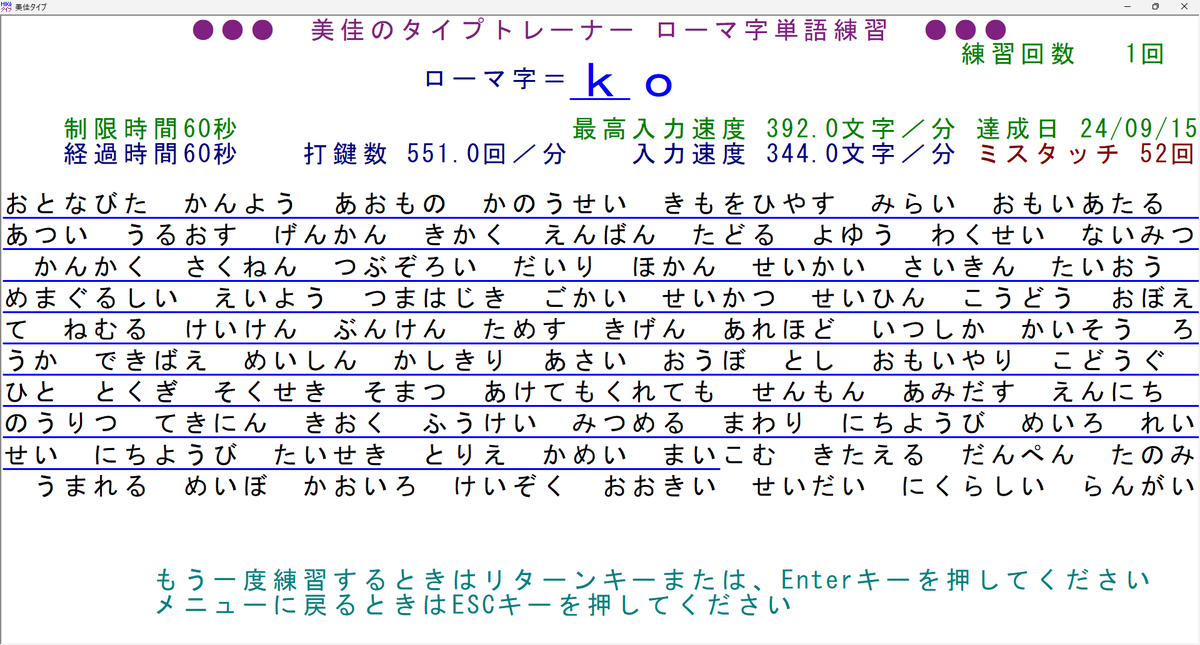 MIKA タイプ 美佳タイプ
●●● 美佳のタイプトレーナー ローマ字単語練習 ●●●
練習回数 1回
ローマ字＝ｋｏ
制限時間60秒 最高入力速度 392.0文字／分 達成日 24/09/15
経過時間60秒 打鍵数 551.0回／分 入力速度 344.0文字／分 ミスタッチ 52回
おとなびた かんよう あおもの かのうせい きもをひやす みらい おもいあたる
あつい うるおす げんかん きかく えんばん たどる よゆう わくせい ないみつ
かんかく さくねん つぶぞろい だいり ほかん せいかい さいきん たいおう
めまぐるしい えいよう つまはじき ごかい せいかつ せいひん こうどう おぼえ
て ねむる けいけん ぶんけん ためす きげん あれほど いつしか かいそう ろ
うか できばえ めいしん かしきり あさい おうぼ とし おもいやり こどうぐ
ひと とくぎ そくせき そまつ あけてもくれても せんもん あみだす えんにち
のうりつ てきにん きおく ふうけい みつめる まわり にちようび めいろ れい
せい にちようび たいせき とりえ かめい まいこむ きたえる だんぺん たのみ
うまれる めいぼ かおいろ けいぞく おおきい せいだい にくらしい らんがい
もう一度練習するときはリターンキーまたは、Enterキーを押してください
メニューに戻るときはESCキーを押してください